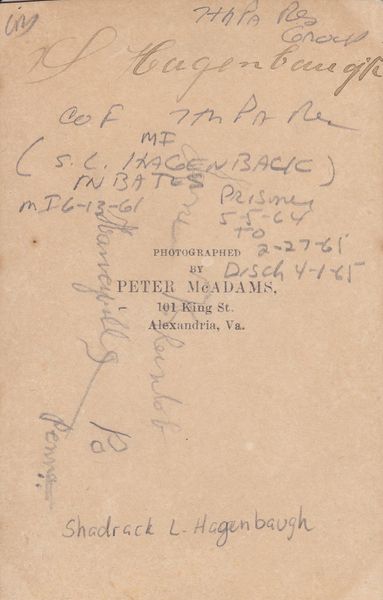 7th Pa Res
Group
S L Hagenbaugh
CO F 7th PA Res
MI
(S. L. HAGENBACK)
IN BATES
MI 6-13-61
Prisoner
5-5-64
TO
2-27-65
Disch 4-1-65
PHOTOGRAPHED
BY
PETER McADAMS,
101 King St.
Alexandria, Va.
Pa
Penna.
Shadrack L. Hagenbaugh